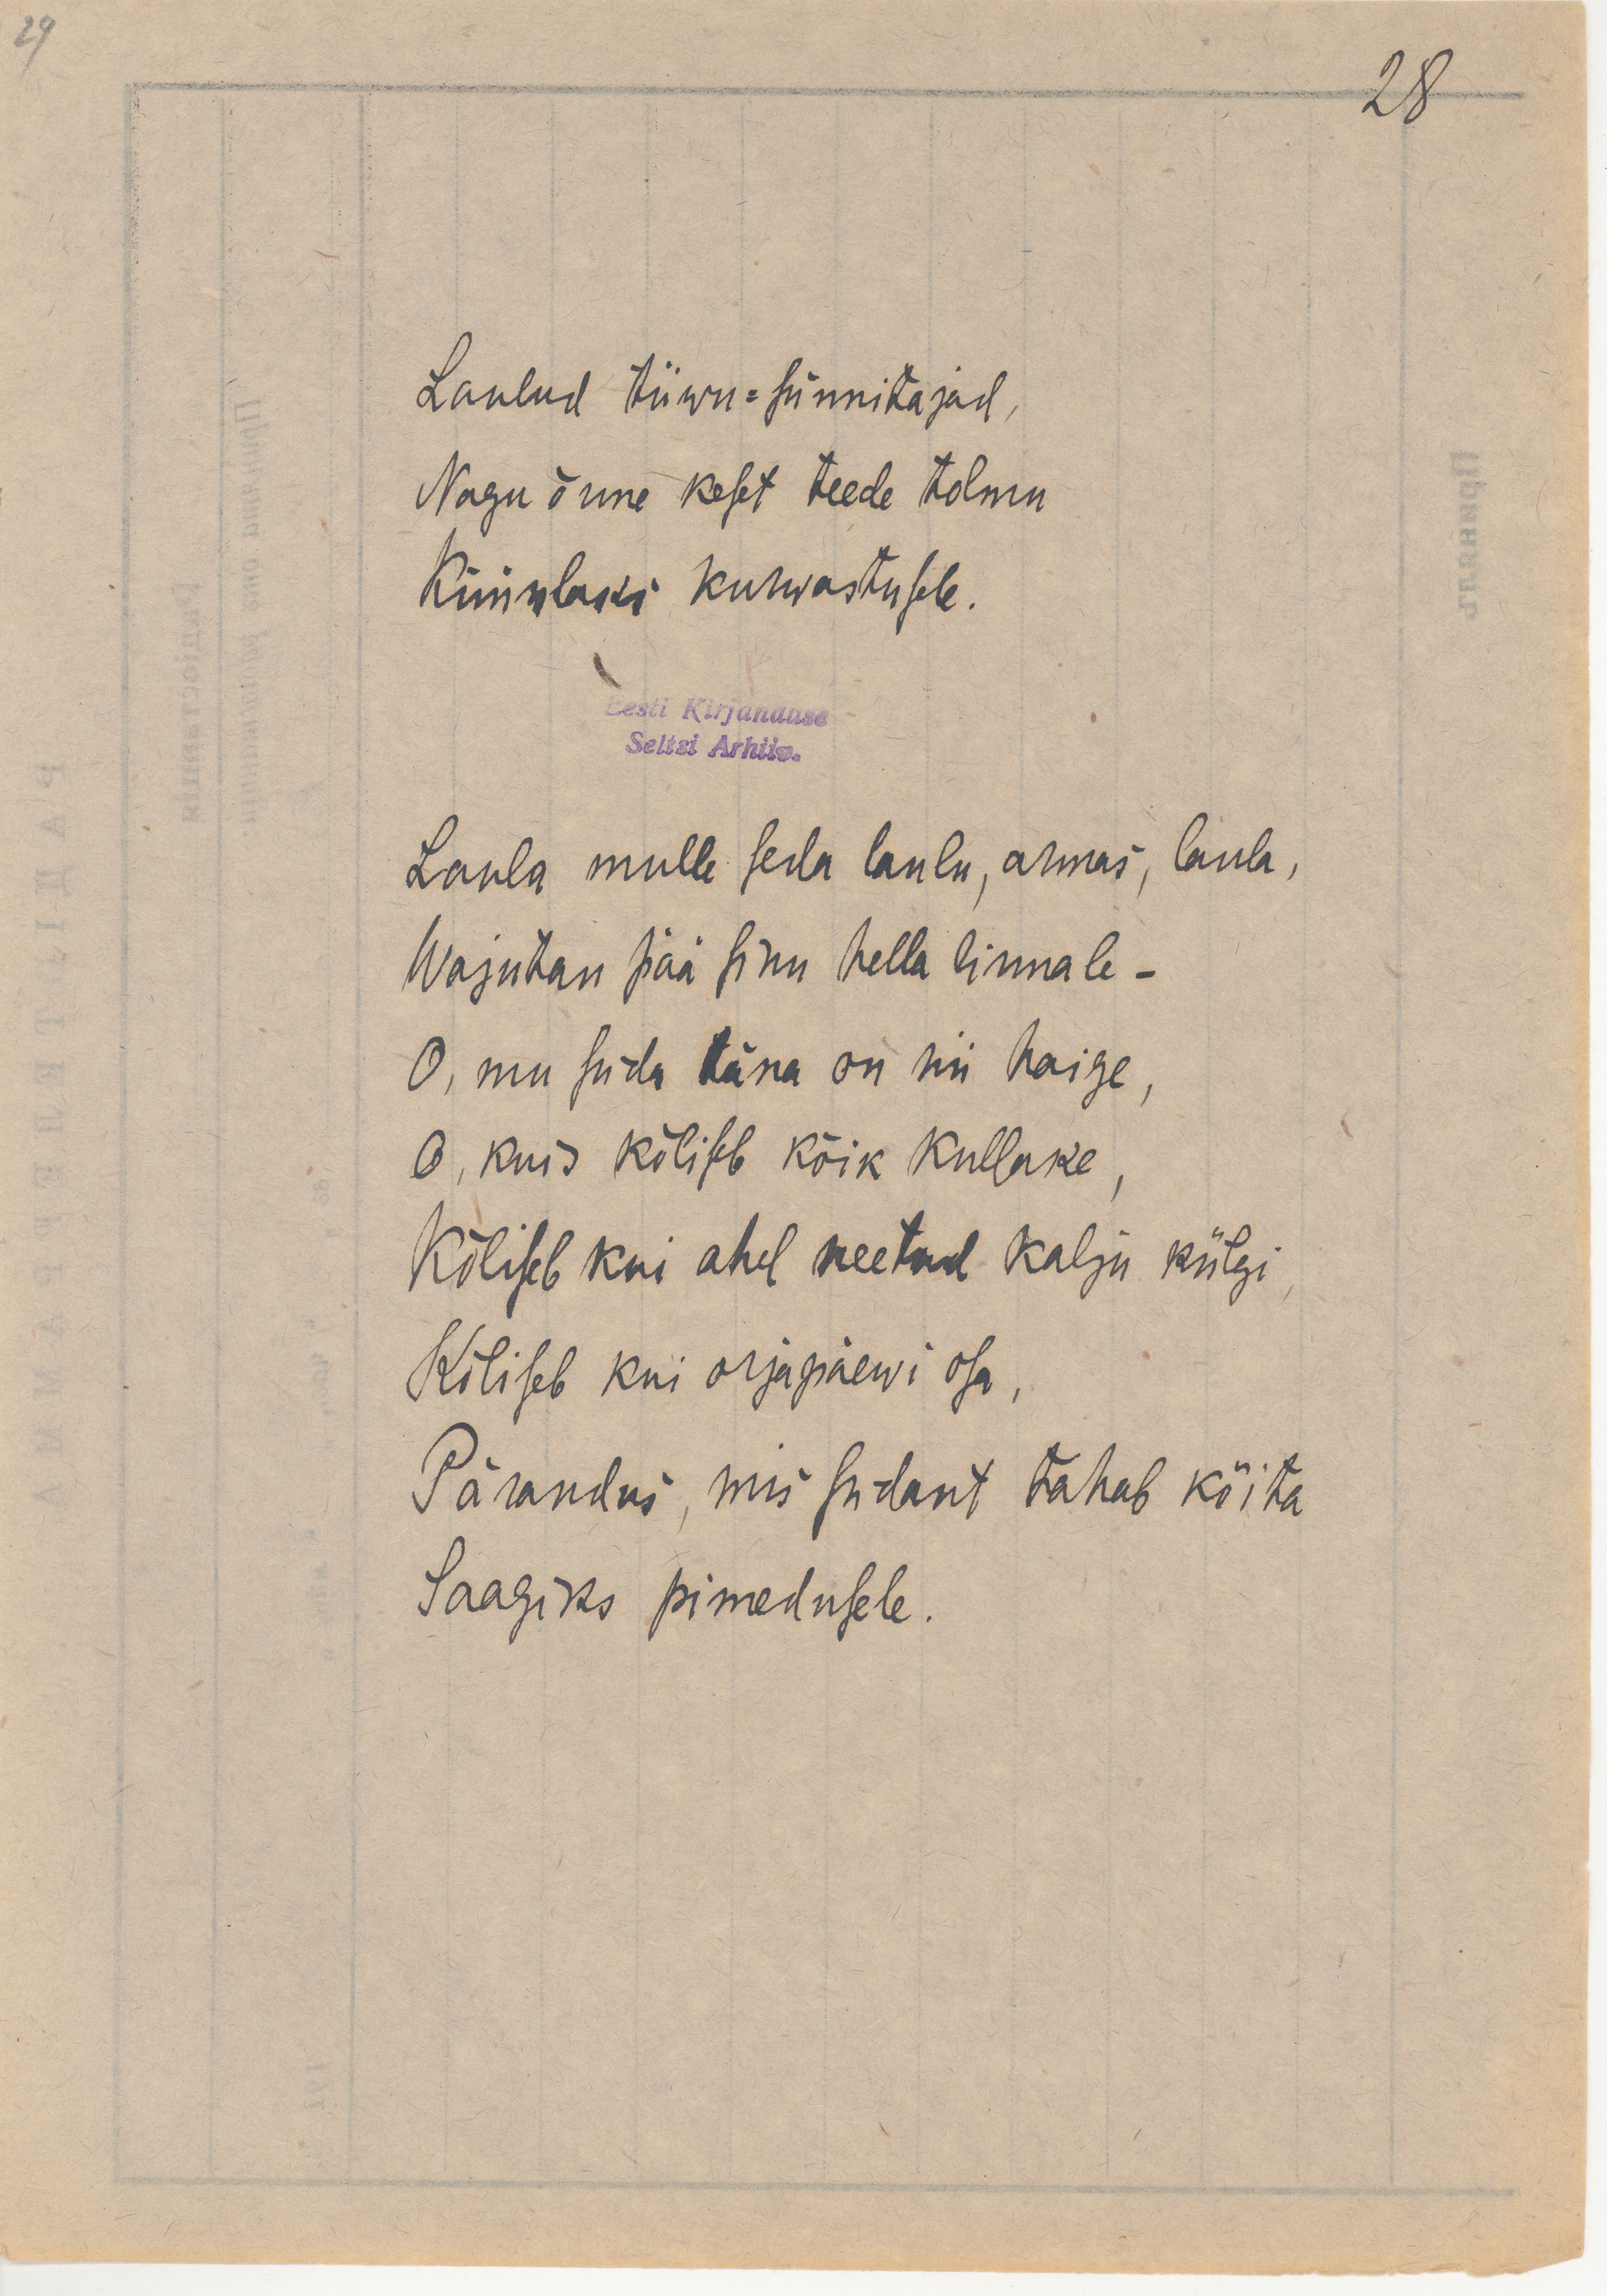 29
28
Laulud tiiwu=sünnitajad,
Nagu õnne keset teede tolmu
Küünlaks kurwastusele.
Eesti Kirjanduse
Seltsi Arhiiv.
Laula mulle seda laulu, armas, laula,
Wajutan pää sinu hella linnale -
O, mu süda täna on nii haige,
O, kuis kõliseb kõik kullake,
Kõliseb kui ahel neetud kalju külgi,
Kõliseb kui orjapäewi osa,
Pärandus, mis südant tahab köita
Saagiks pimedusele.